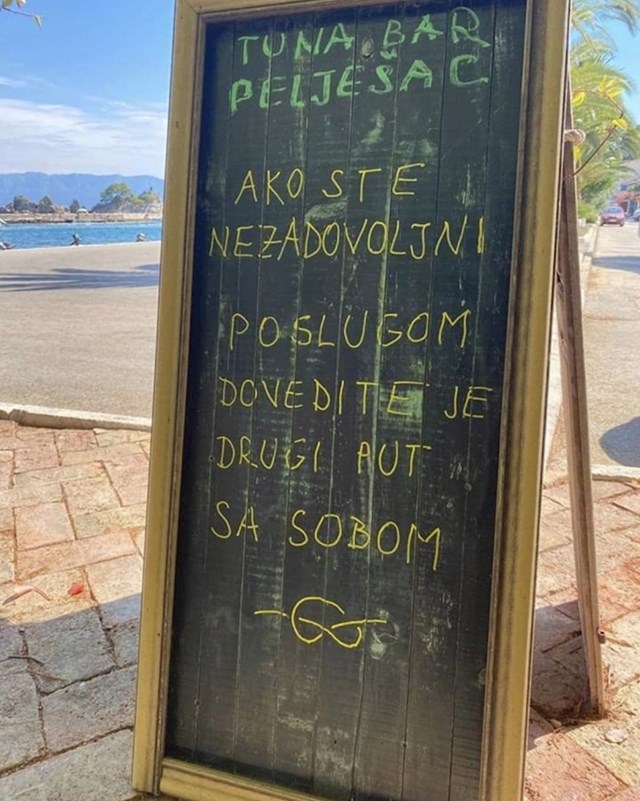 TUNA BAR
PELJEŠAC
AKO STE
NEZADOVOLJNI
POSLUGOM
DOVEDITE JE
DRUGI PUT
SA SOBOM